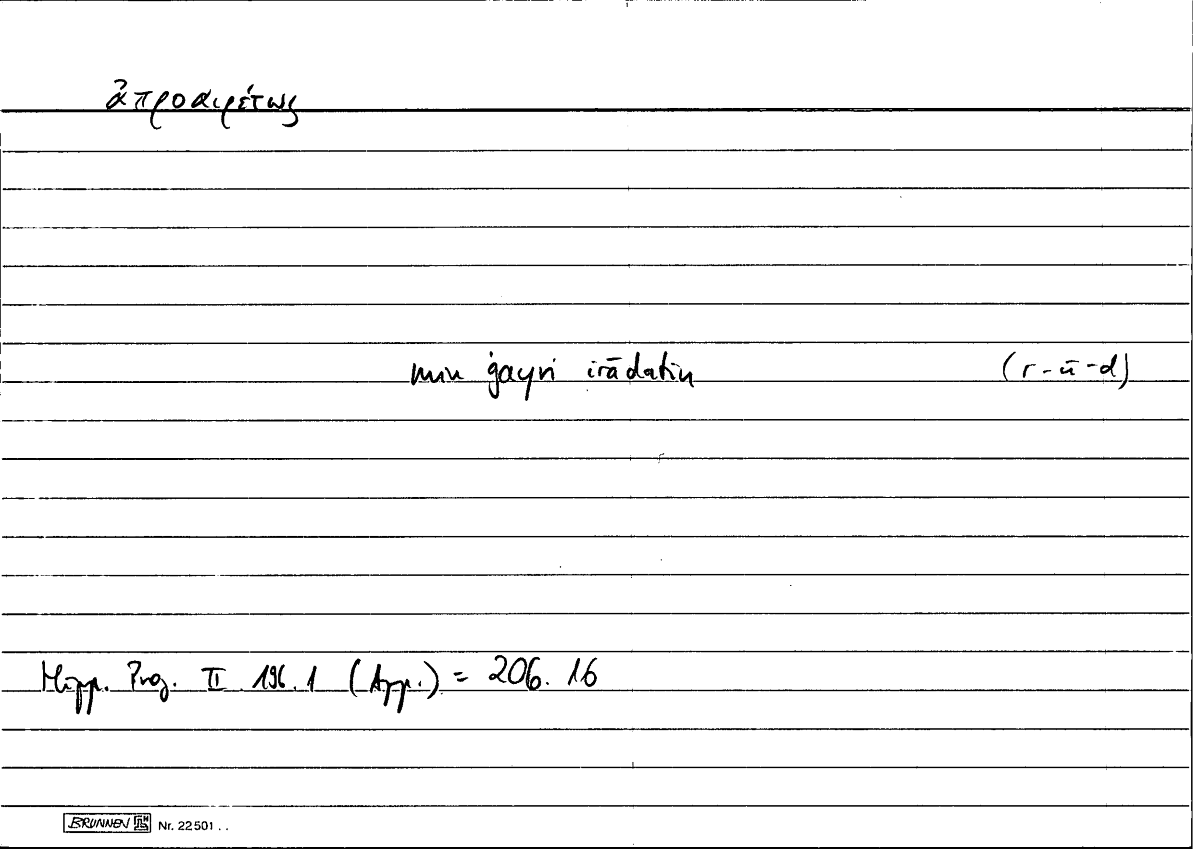 ἀπροαιρέτως
min ġayri irādatin (r-ū-d)
Hipp. Prog. II 196.1 (App.) = 206.16
BRUNNEN Nr. 22501 ..